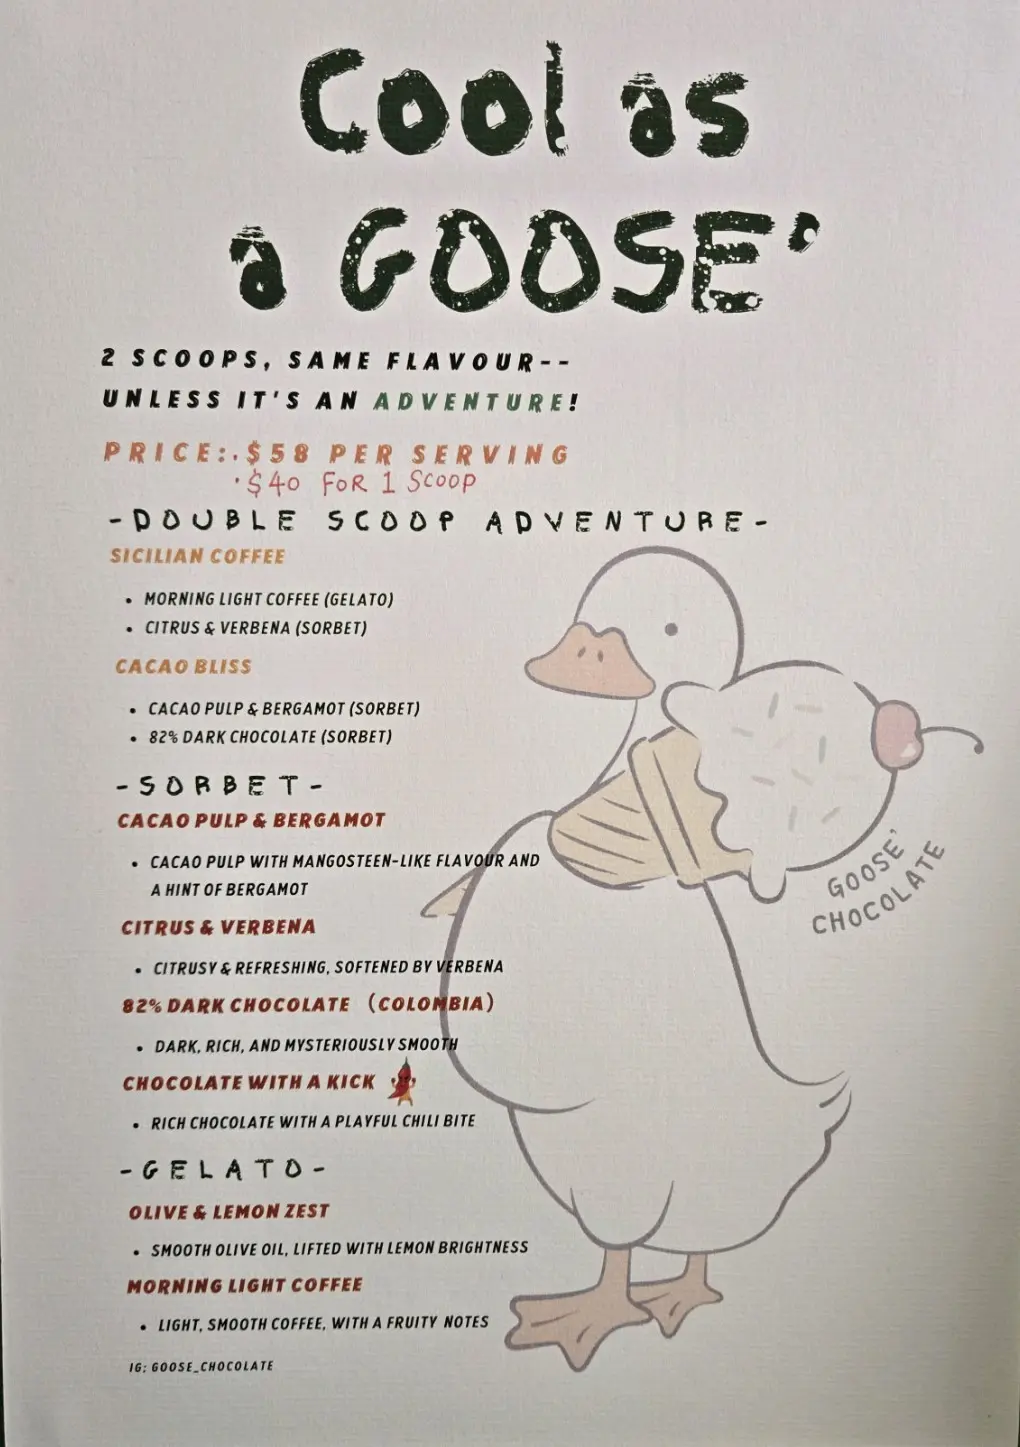 Cool as
a GOOSE'
2 SCOOPS, SAME FLAVOUR--
UNLESS IT'S AN ADVENTURE!
PRICE:·$58 PER SERVING
·$40 FOR 1 SCOOP
-DOUBLE SCOOP ADVENTURE-
SICILIAN COFFEE
• MORNING LIGHT COFFEE (GELATO)
• CITRUS & VERBENA (SORBET)
CACAO BLISS
• CACAO PULP & BERGAMOT (SORBET)
• 82% DARK CHOCOLATE (SORBET)
-SORBET-
CACAO PULP & BERGAMOT
• CACAO PULP WITH MANGOSTEEN-LIKE FLAVOUR AND
A HINT OF BERGAMOT
CITRUS & VERBENA
• CITRUSY & REFRESHING, SOFTENED BY VERBENA
82% DARK CHOCOLATE (COLOMBIA)
• DARK, RICH, AND MYSTERIOUSLY SMOOTH
CHOCOLATE WITH A KICK
• RICH CHOCOLATE WITH A PLAYFUL CHILI BITE
-GELATO-
OLIVE & LEMON ZEST
• SMOOTH OLIVE OIL, LIFTED WITH LEMON BRIGHTNESS
MORNING LIGHT COFFEE
• LIGHT, SMOOTH COFFEE, WITH A FRUITY NOTES
IG: GOOSE_CHOCOLATE
GOOSE'
CHOCOLATE